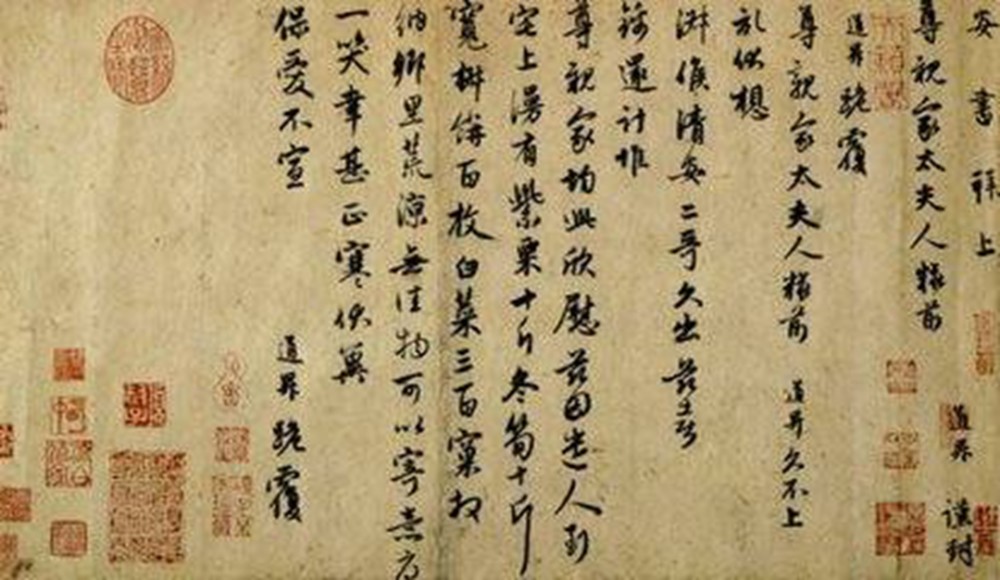 安書拜上
尊親家太夫人粧前
道昇謹封
道昇跪覆
尊親家太夫人粧前 道昇久不上
狀伏想
淑候清安二哥久出茲喜
錦還計惟
尊親家均此欣慰茲因遣人到
宅上漫有紫栗十斤冬笋十斤
寬糾餅百枚白菜三百窠拜
納鄉里荒涼無佳物可以寄意前
一笑幸甚正寒伏冀
保愛不宣
道昇跪覆